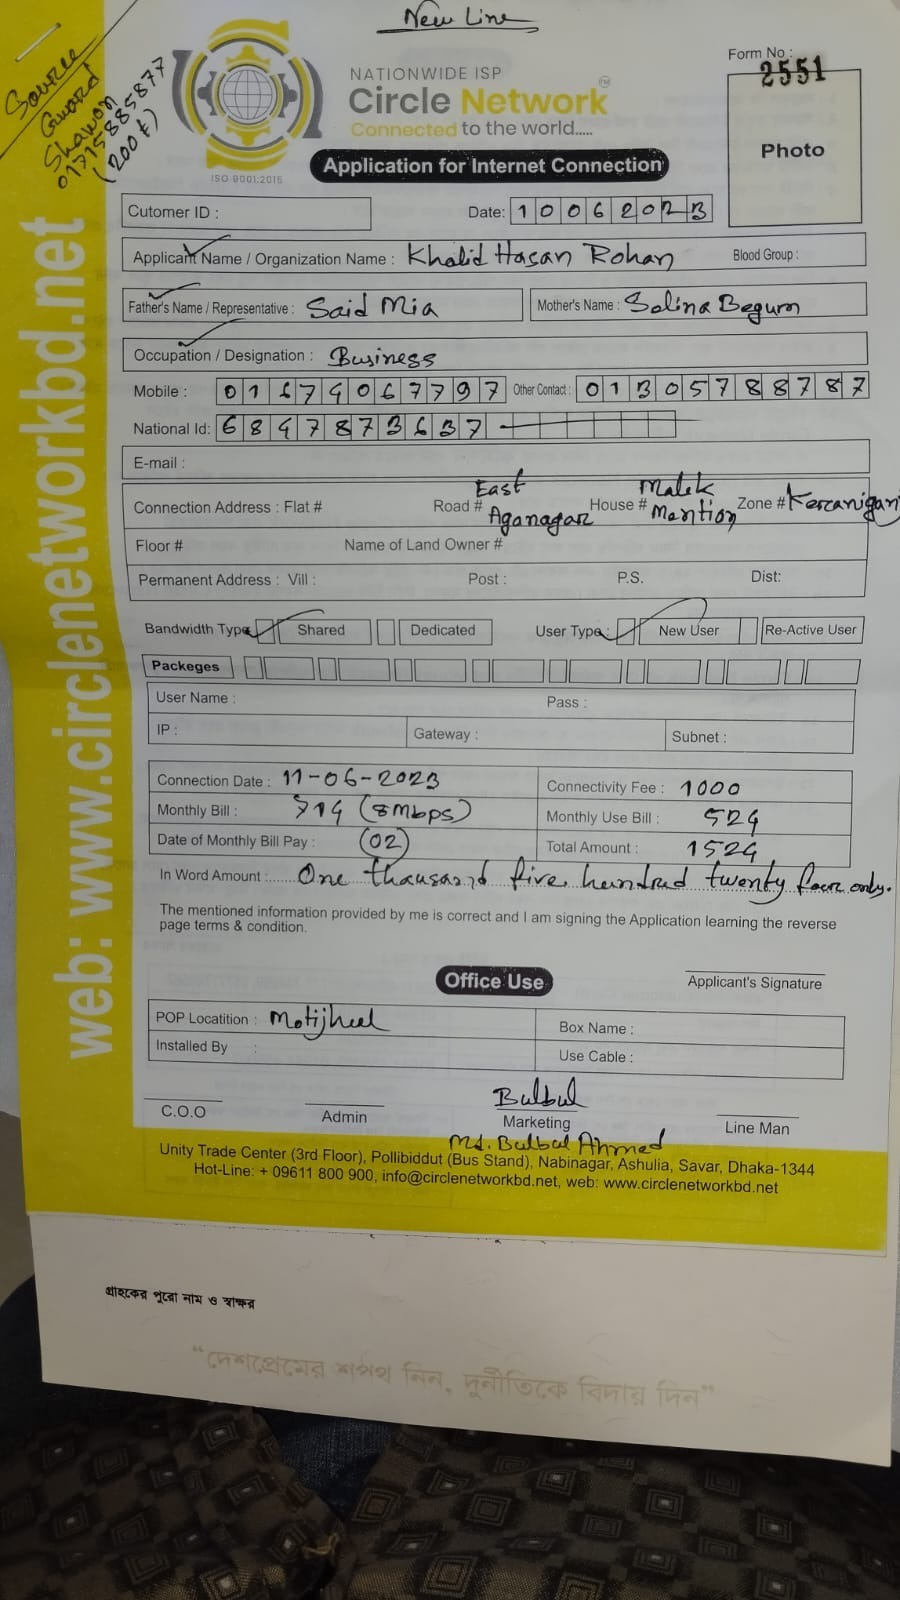 New Line
Source
Guard
Shawon
01715885877
(200 ৳)
Form No :
2551
NATIONWIDE ISP
Circle Network TM
Connected to the world.....
ISO 9001:2015
Photo
Application for Internet Connection
Cutomer ID :
Date: 10062023
Applicant Name / Organization Name : Khalid Hasan Rohan Blood Group :
Father's Name / Representative : Said Mia Mother's Name : Salina Begum
Occupation / Designation : Business
Mobile : 01674067797 Other Contact : 01305788787
National Id: 6847873637
E-mail :
Connection Address : Flat # Road # East Aganagar House # Malek Mention Zone # Keraniganj
Floor # Name of Land Owner #
Permanent Address : Vill : Post : P.S. Dist:
Bandwidth Type: Shared Dedicated User Type: New User Re-Active User
Packeges
User Name : Pass :
IP : Gateway : Subnet :
Connection Date : 11-06-2023 Connectivity Fee : 1000
Monthly Bill : (8Mbps) Monthly Use Bill : 524
Date of Monthly Bill Pay : (02) Total Amount : 1524
In Word Amount :...... One thousand five hundred twenty four only.
The mentioned information provided by me is correct and I am signing the Application learning the reverse
page terms & condition.
Office Use
Applicant's Signature
POP Locatition : Motijheel Box Name :
Installed By : Use Cable :
Bulbul
C.O.O Admin Marketing Line Man
Md. Bulbul Ahmed
Unity Trade Center (3rd Floor), Pollibiddut (Bus Stand), Nabinagar, Ashulia, Savar, Dhaka-1344
Hot-Line: + 09611 800 900, info@circlenetworkbd.net, web: www.circlenetworkbd.net
web: www.circlenetworkbd.net
গ্রাহকের পুরো নাম ও স্বাক্ষর
“দেশপ্রেমের শপথ নিন, দুর্নীতিকে বিদায় দিন”